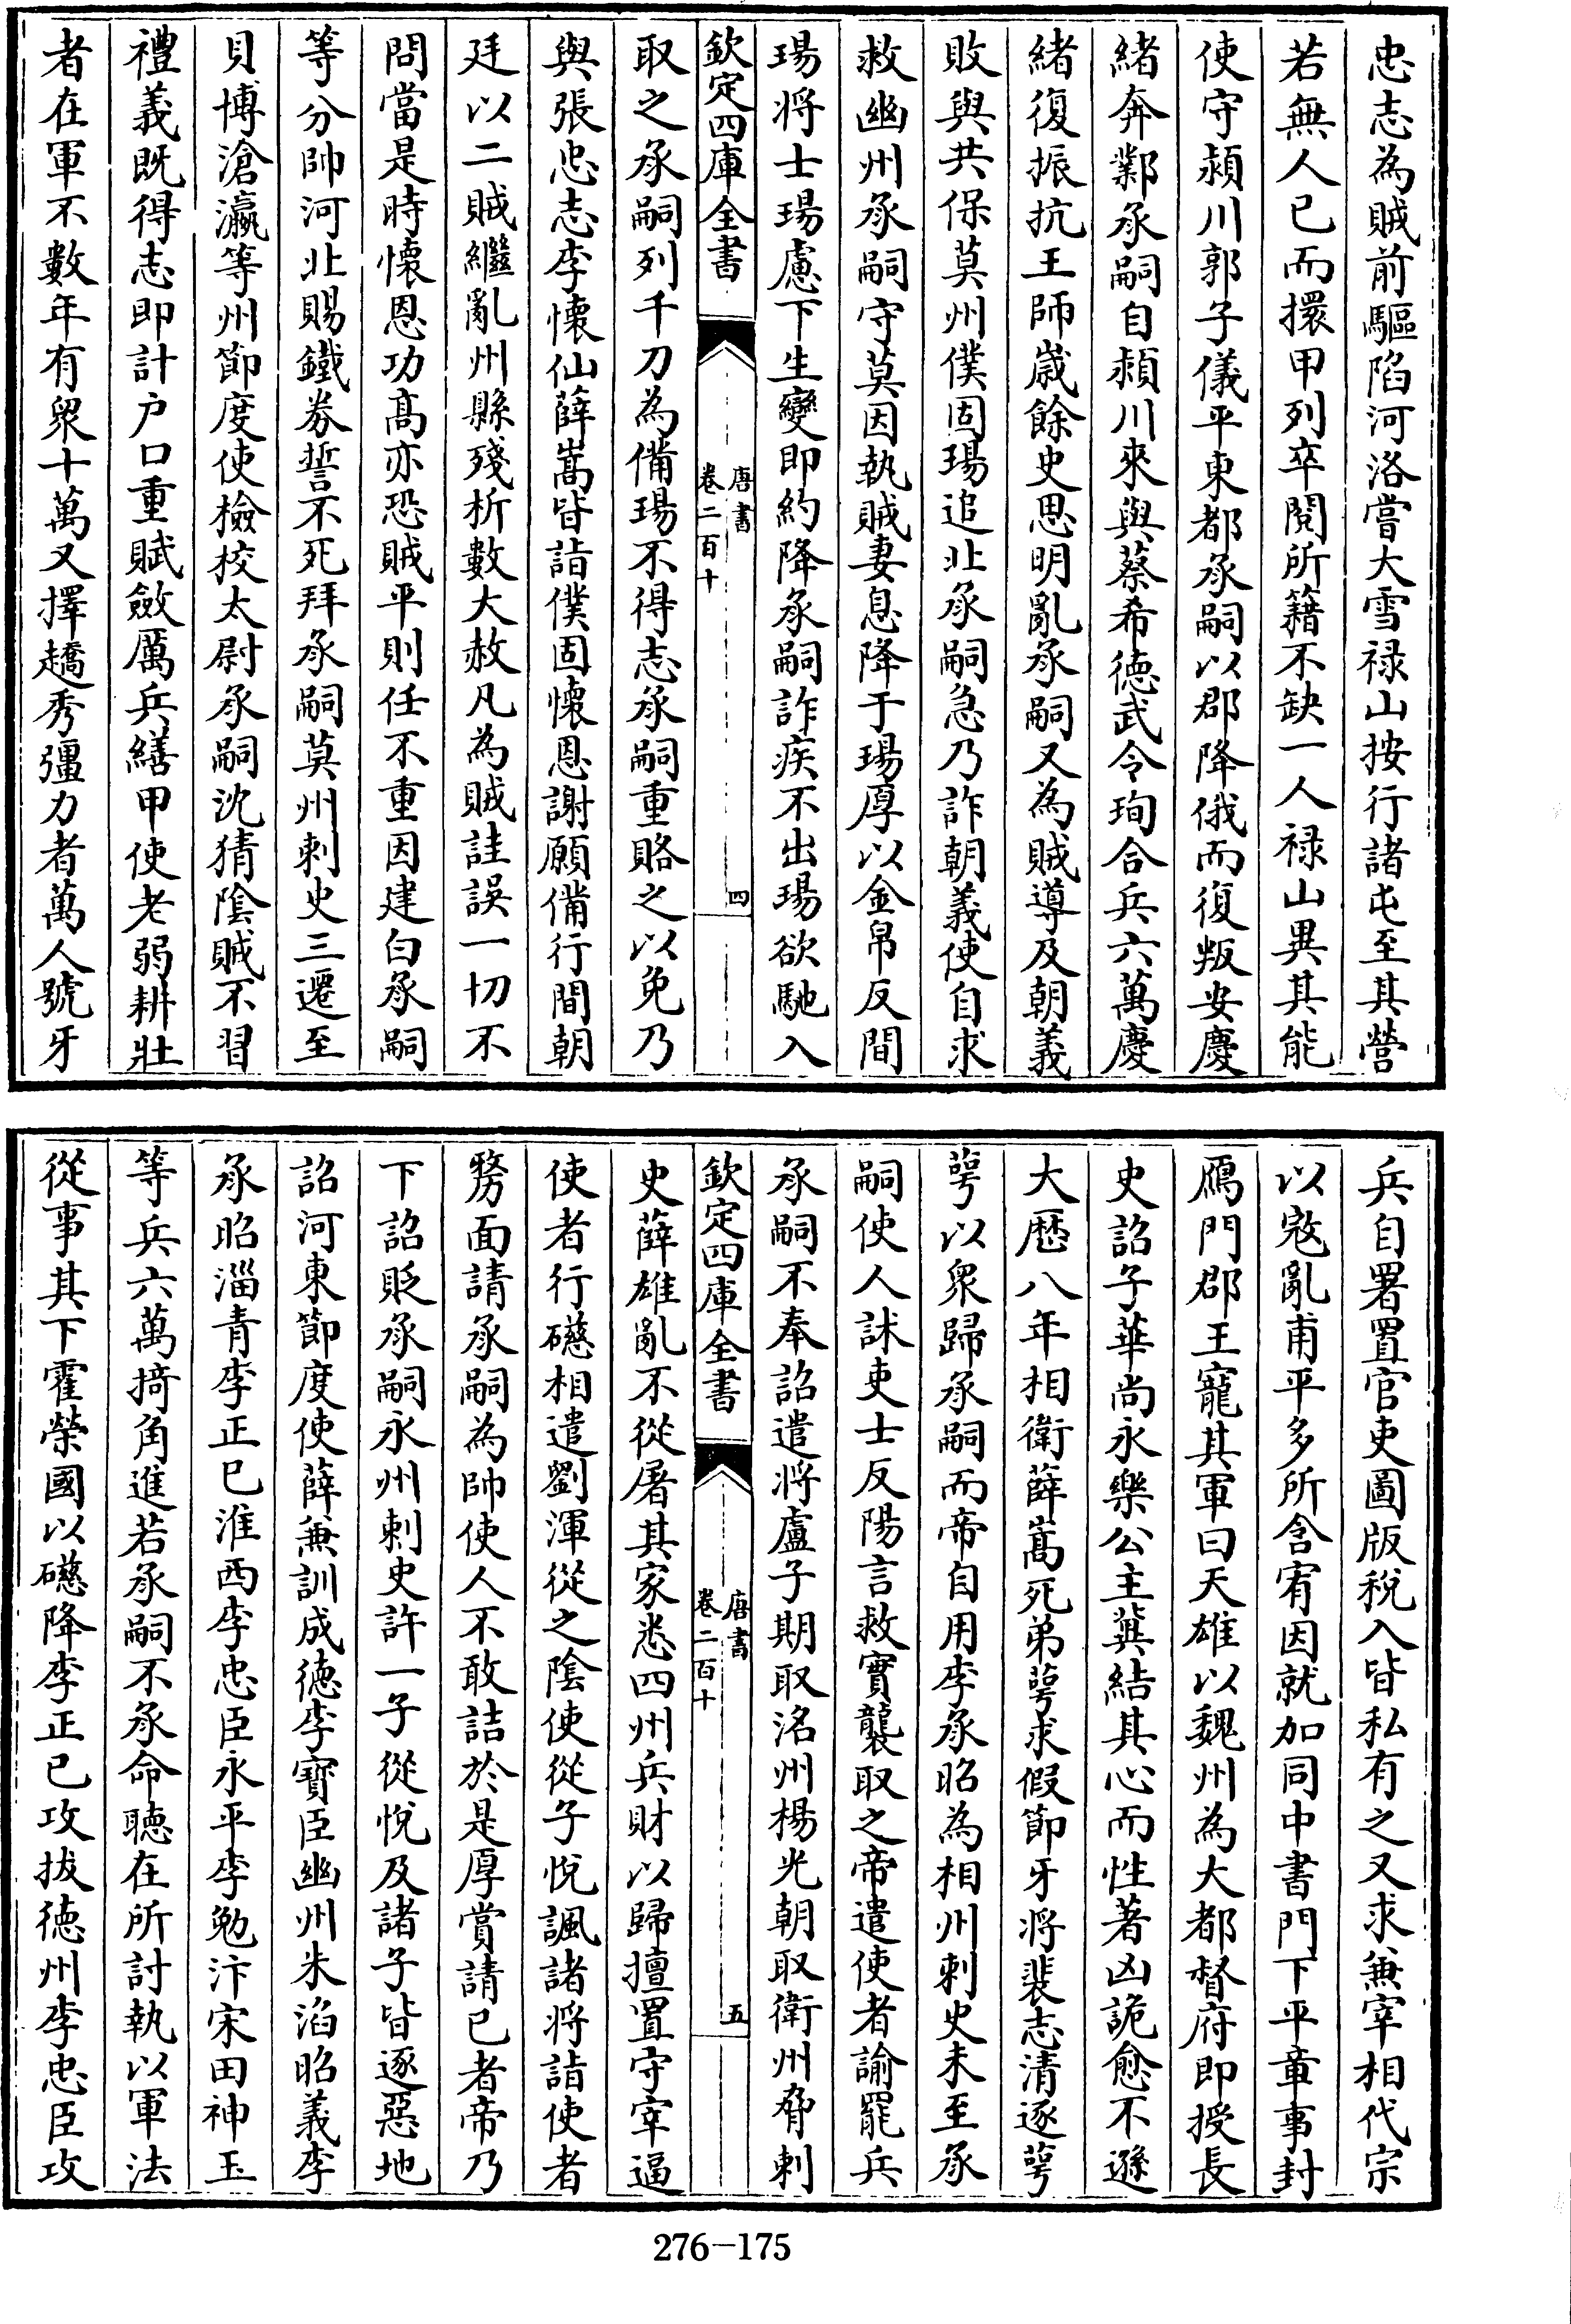 忠志為賊前驅陷河洛嘗大雪禄山按行諸屯至其營
若無人已而擐甲列卒閱所籍不缺一人禄山異其能
使守潁川郭子儀平東都承嗣以郡降俄而復叛安慶
緒奔鄴承嗣自潁川來與蔡希徳武令珣合兵六萬慶
緒復振抗王師歳餘史思明亂承嗣又為賊導及朝義
敗與共保莫州僕固瑒追北承嗣急乃詐朝義使自求
救幽州承嗣守莫因執賊妻息降于瑒厚以金帛反間
瑒将士瑒慮下生變即約降承嗣詐疾不出瑒欲馳入
欽定四庫全書
唐書
卷二百十
四
取之承嗣列千刀為備瑒不得志承嗣重賂之以免乃
與張忠志李懐仙薛嵩皆詣僕固懐恩謝願備行間朝
廷以二賊繼亂州縣殘析數大赦凡為賊詿誤一切不
問當是時懐恩功髙亦恐賊平則任不重因建白承嗣
等分帥河北賜鐵券誓不死拜承嗣莫州刺史三遷至
貝博滄瀛等州節度使檢校太尉承嗣沈猜隂賊不習
禮義既得志即計户口重賦斂厲兵繕甲使老弱耕壯
者在軍不數年有衆十萬又擇趫秀彊力者萬人號牙
兵自署置官吏圖版稅入皆私有之又求兼宰相代宗
以宼亂甫平多所含宥因就加同中書門下平章事封
鴈門郡王寵其軍曰天雄以魏州為大都督府即授長
史詔子華尚永樂公主冀結其心而性著凶詭愈不遜
大厯八年相衛薛嵩死弟㟧求假節牙将裴志清逐㟧
㟧以衆歸承嗣而帝自用李承昭為相州刺史未至承
嗣使人訹吏士反陽言救實襲取之帝遣使者諭罷兵
承嗣不奉詔遣将盧子期取洺州楊光朝取衛州脅刺
欽定四庫全書
唐書
卷二百十
五
史薛雄亂不從屠其家悉四州兵財以歸擅置守宰逼
使者行磁相遣劉渾從之隂使從子悅諷諸将詣使者
剺面請承嗣為帥使人不敢詰於是厚賞請已者帝乃
下詔貶承嗣永州刺史許一子從悅及諸子皆逐惡地
詔河東節度使薛兼訓成徳李寳臣幽州朱滔昭義李
承昭淄青李正已淮西李忠臣永平李勉汴宋田神玉
等兵六萬掎角進若承嗣不承命聽在所討執以軍法
從事其下霍榮國以磁降李正已攻拔徳州李忠臣攻
276-175